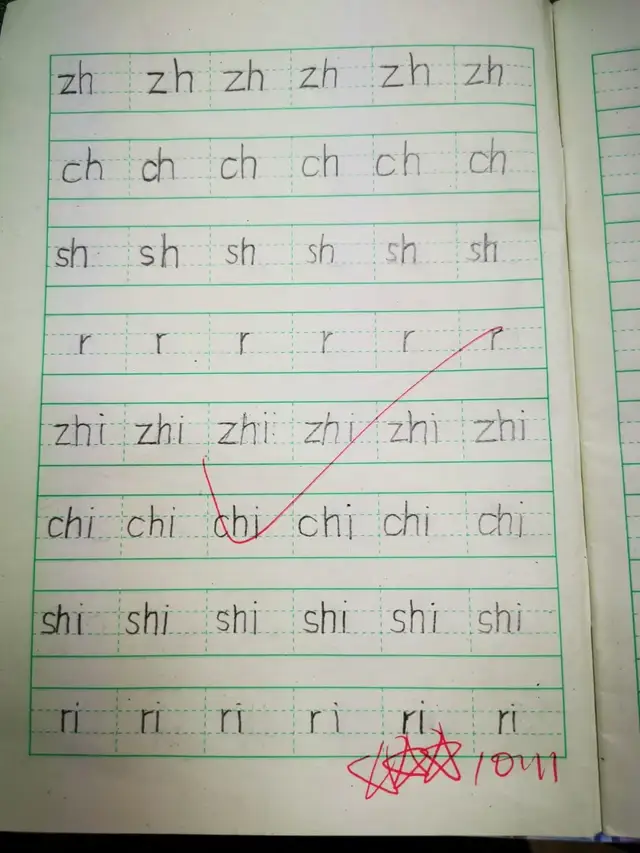 zh zh zh zh zh zh
ch ch ch ch ch ch
sh sh sh sh sh sh
r r r r r r
zhi zhi zhi zhi zhi zhi
chi chi chi chi chi chi
shi shi shi shi shi shi
ri ri ri ri ri ri